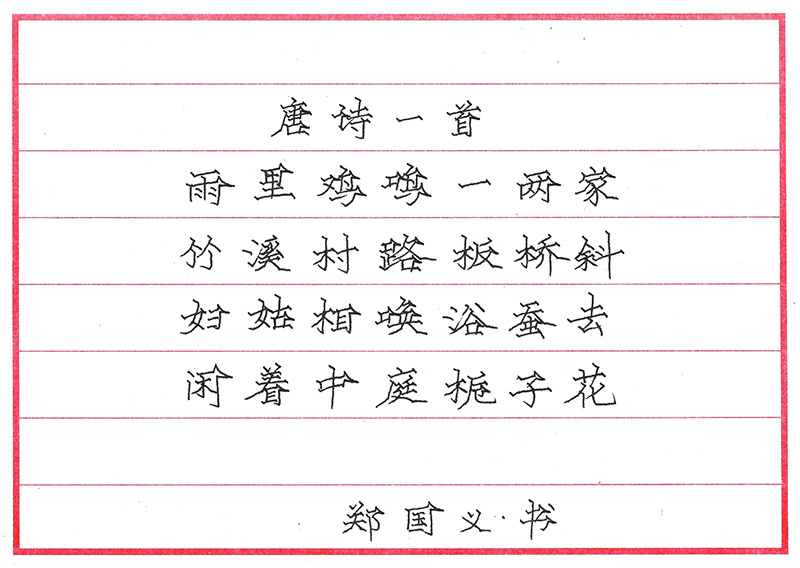 唐诗一首
雨里鸡鸣一两家
竹溪村路板桥斜
妇姑相唤浴蚕去
闲着中庭栀子花
郑国义·书